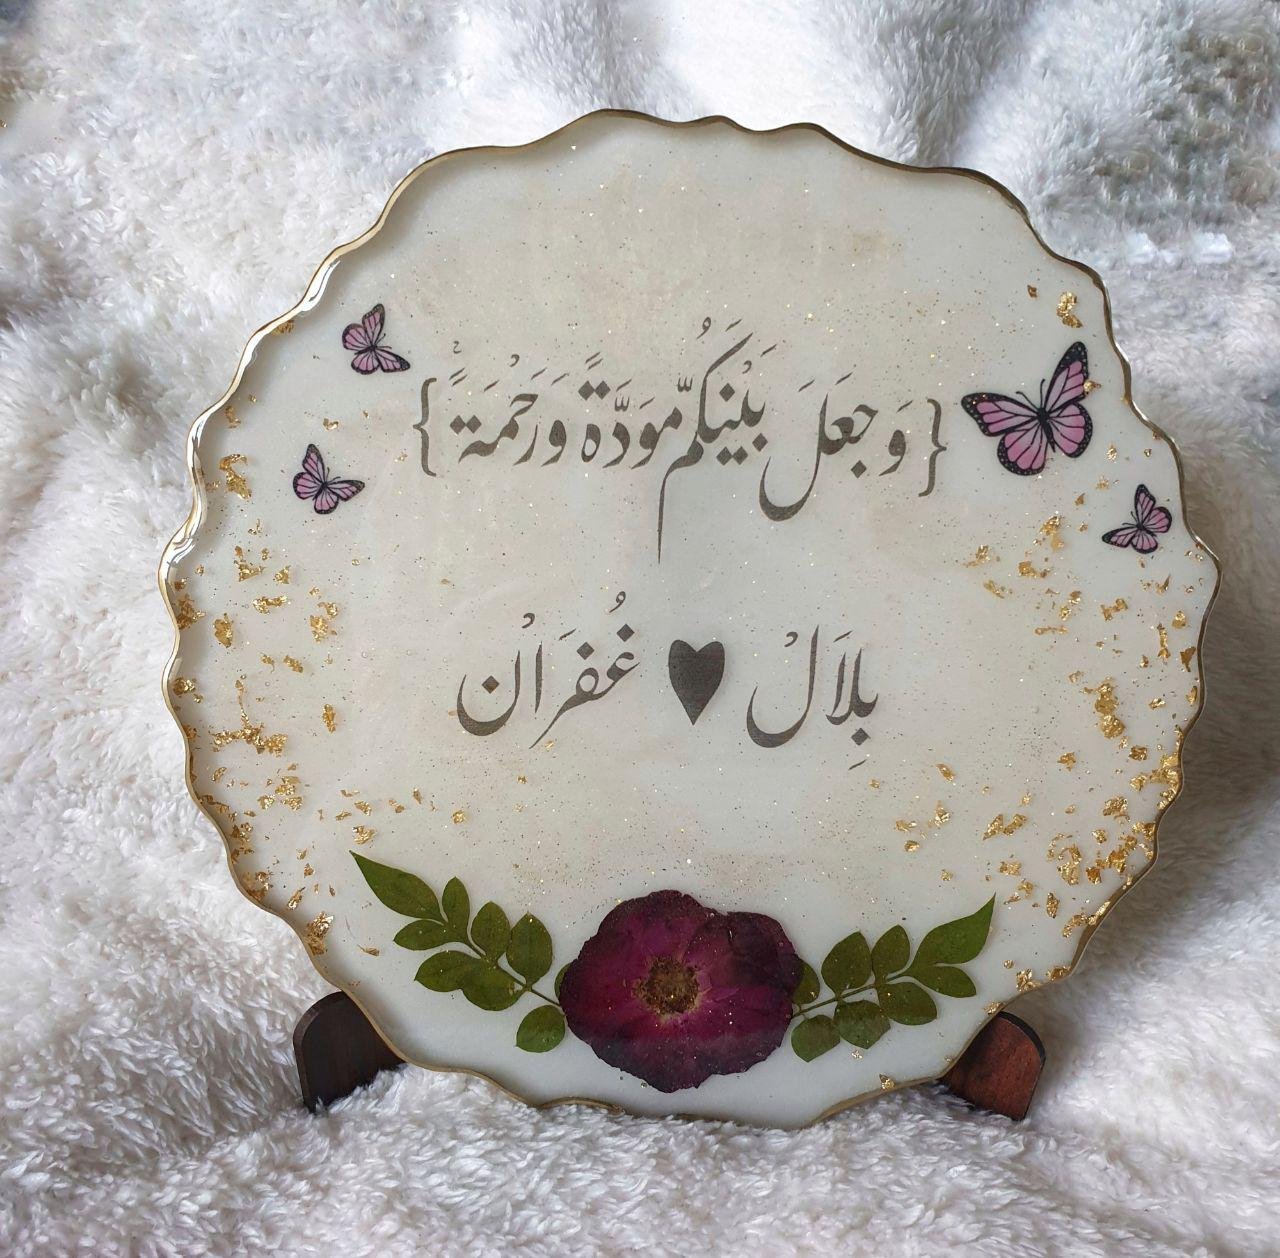 { وَجعَلَ بَيْنَكُم مّوَدَّةً وَرَحْمَةً }
بِلاَلْ ♥ غُفرَانْ